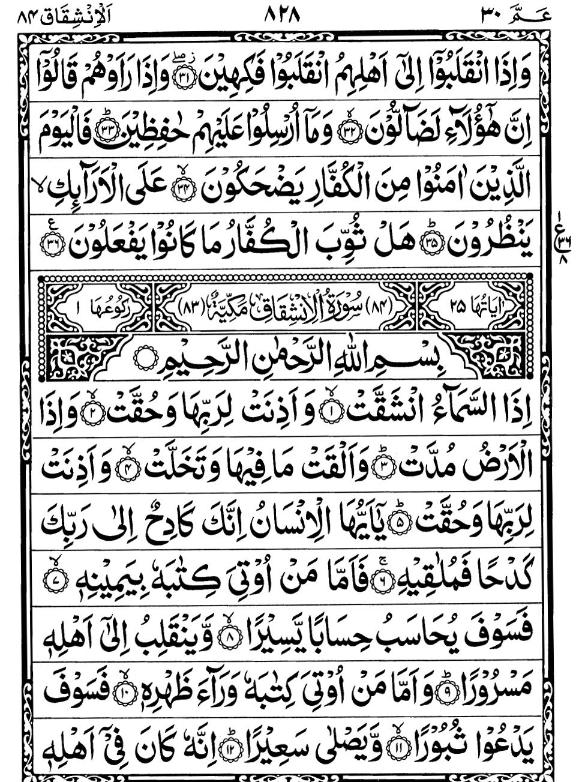 عَمَّ ۳۰ ۸۲۸ اَلْاِنْشِقَاق ۸۴
وَاِذَا انْقَلَبُوْۤا اِلٰۤى اَهْلِهِمُ انْقَلَبُوْا فَكِهِيْنَ ۳۱ وَاِذَا رَاَوْهُمْ قَالُوْۤا
اِنَّ هٰۤؤُلَآءِ لَضَآلُّوْنَ ۳۲ وَمَاۤ اُرْسِلُوْا عَلَيْهِمْ حٰفِظِيْنَ ؕ ۳۳ فَالْيَوْمَ
الَّذِيْنَ اٰمَنُوْا مِنَ الْكُفَّارِ يَضْحَكُوْنَ ۙ ۳۴ عَلَى الْاَرَآئِكِ ۙ
يَنْظُرُوْنَ ؕ ۳۵ هَلْ ثُوِّبَ الْكُفَّارُ مَا كَانُوْا يَفْعَلُوْنَ ۳۶ ع
۱ ع ۳۶ ۸
اٰيَاتُهَا ۲۵ (۸۴) سُوْرَةُ الْاِنْشِقَاقِ مَكِّيَّةٌ (۸۳) رُكُوْعُهَا ۱
بِسْمِ اللّٰهِ الرَّحْمٰنِ الرَّحِيْمِ
اِذَا السَّمَآءُ انْشَقَّتْ ۙ ۱ وَاَذِنَتْ لِرَبِّهَا وَحُقَّتْ ۙ ۲ وَاِذَا
الْاَرْضُ مُدَّتْ ؕ ۳ وَاَلْقَتْ مَا فِيْهَا وَتَخَلَّتْ ۙ ۴ وَاَذِنَتْ
لِرَبِّهَا وَحُقَّتْ ؕ ۵ يٰۤاَيُّهَا الْاِنْسَانُ اِنَّكَ كَادِحٌ اِلٰى رَبِّكَ
كَدْحًا فَمُلٰقِيْهِ ۚ ۶ فَاَمَّا مَنْ اُوْتِيَ كِتٰبَهٗ بِيَمِيْنِهٖ ۙ ۷
فَسَوْفَ يُحَاسَبُ حِسَابًا يَّسِيْرًا ۙ ۸ وَّيَنْقَلِبُ اِلٰۤى اَهْلِهٖ
مَسْرُوْرًا ؕ ۹ وَاَمَّا مَنْ اُوْتِيَ كِتٰبَهٗ وَرَآءَ ظَهْرِهٖ ۙ ۱۰ فَسَوْفَ
يَدْعُوْا ثُبُوْرًا ۙ ۱۱ وَّيَصْلٰى سَعِيْرًا ؕ ۱۲ اِنَّهٗ كَانَ فِيْۤ اَهْلِهٖ